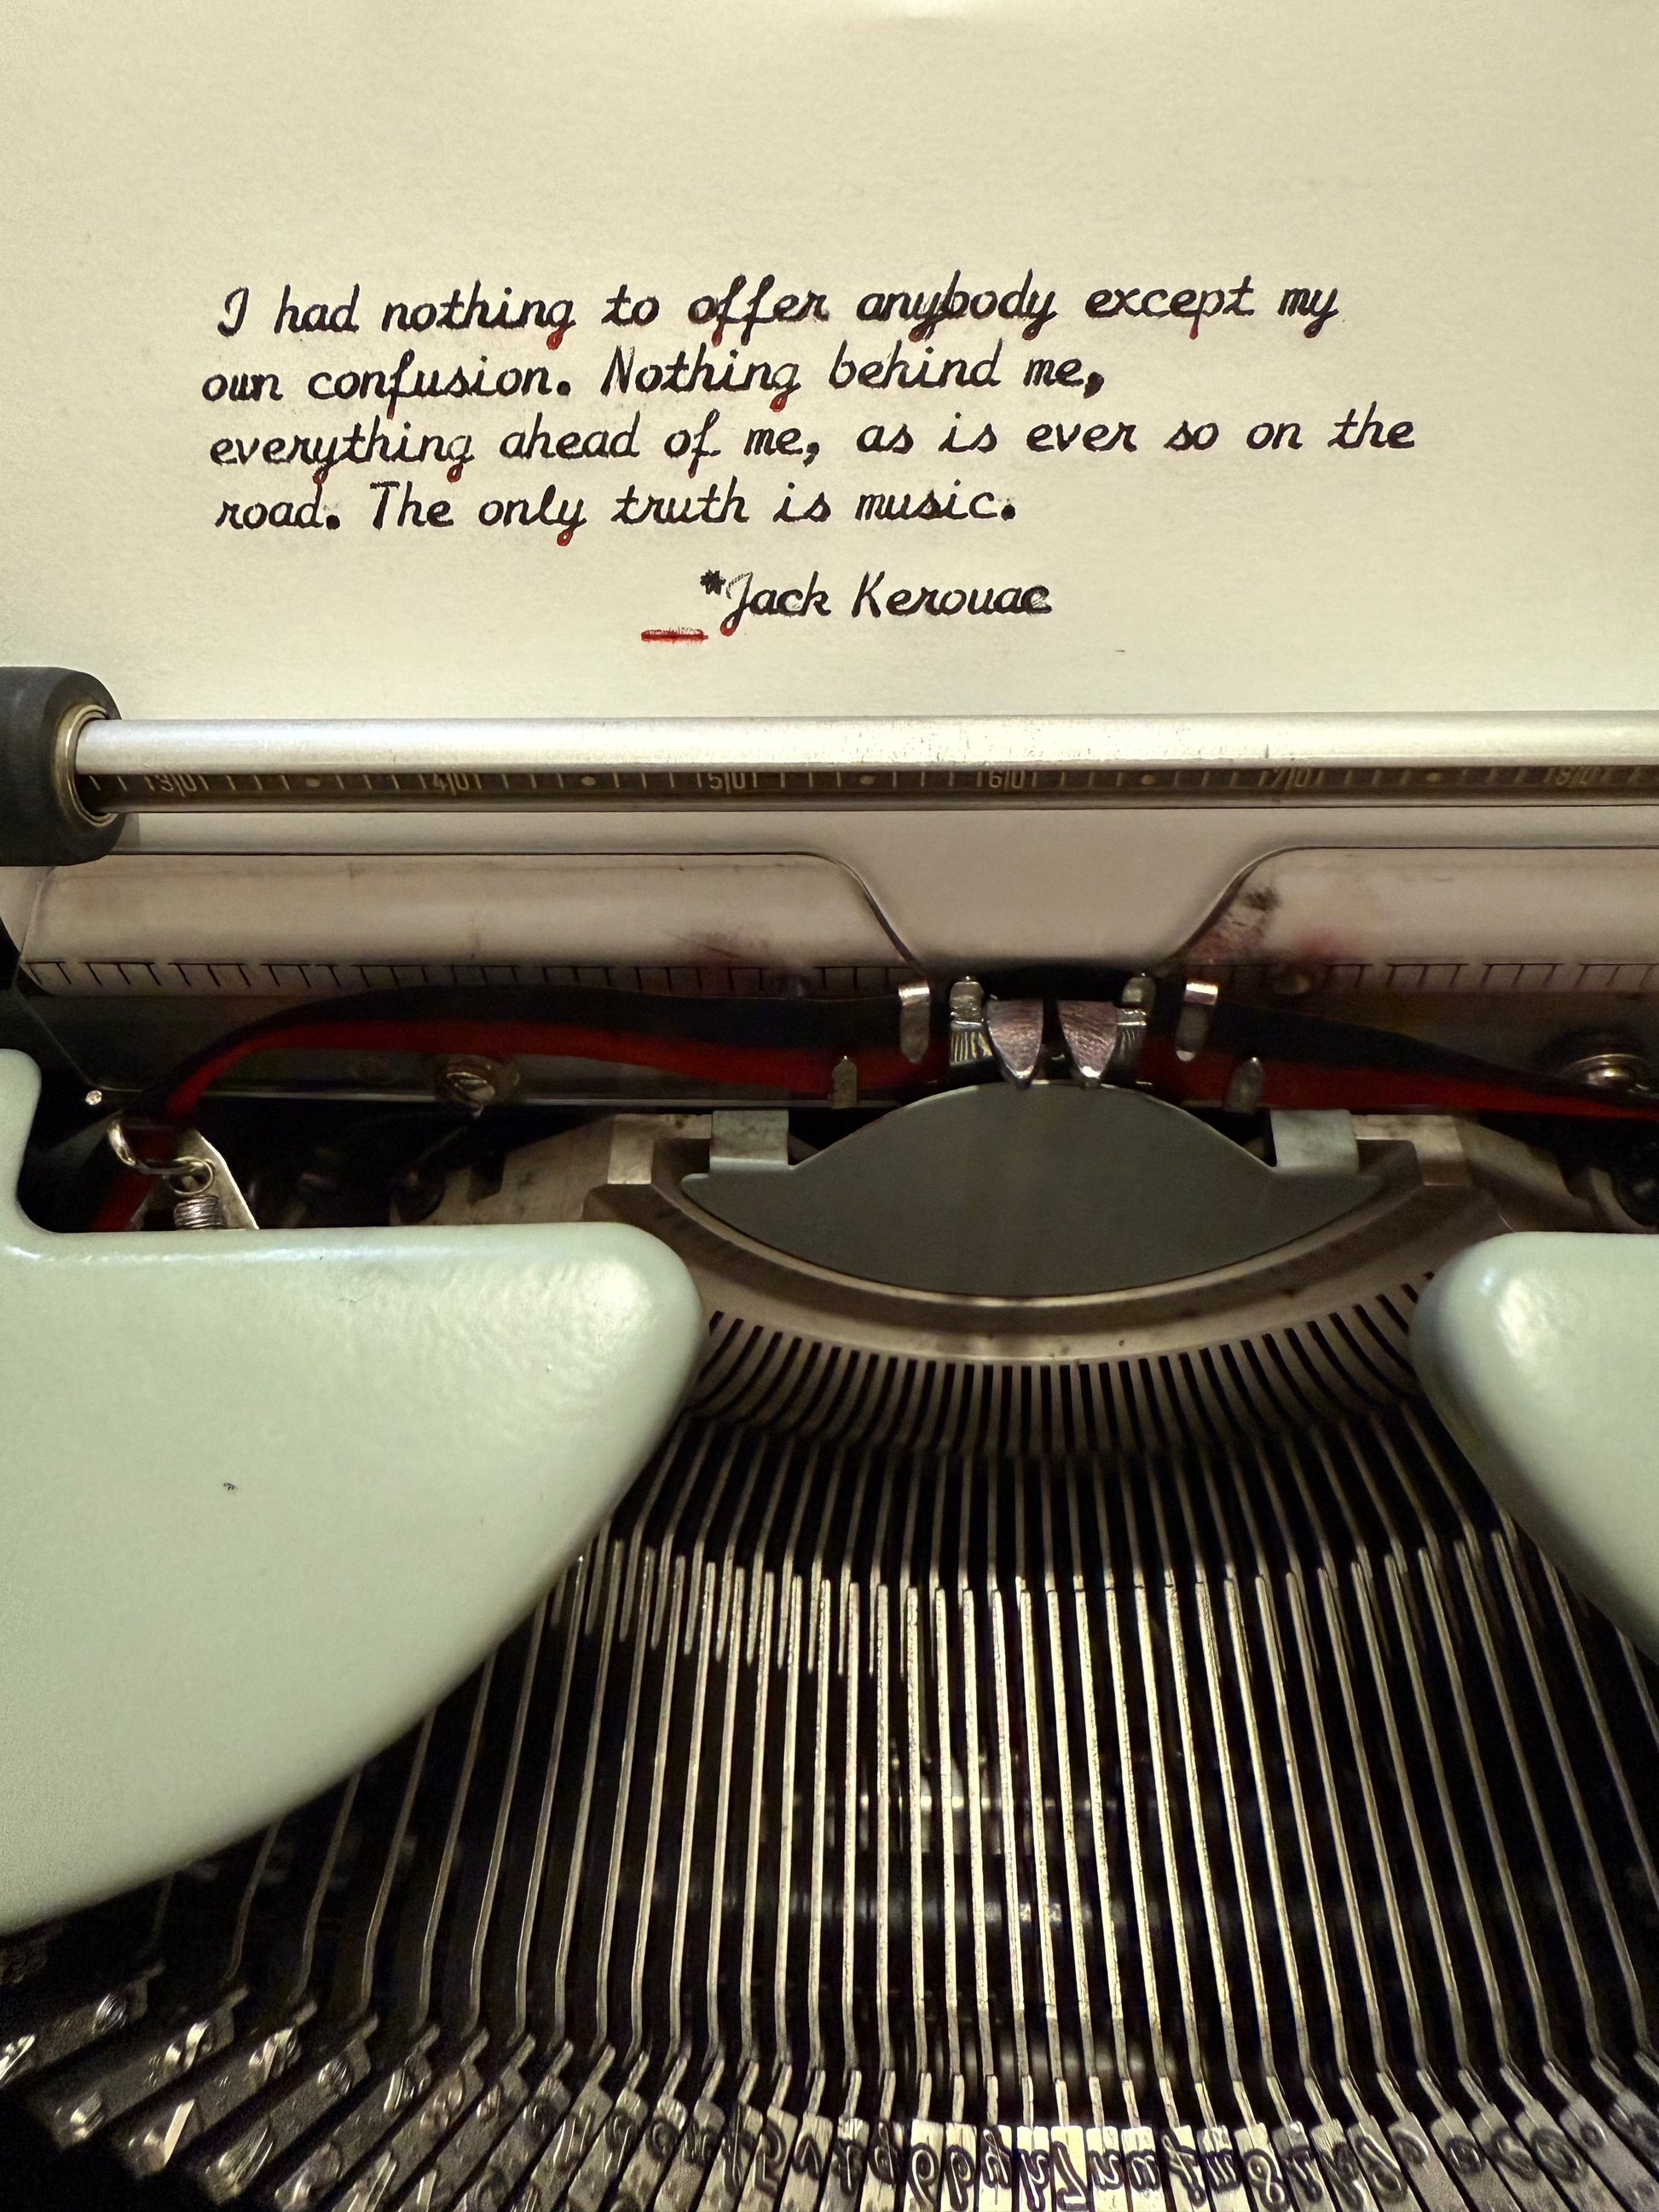 I had nothing to offer anybody except my
own confusion. Nothing behind me,
everything ahead of me, as is ever so on the
road. The only truth is music.
*Jack Kerouac
30 40 50 60 70 80